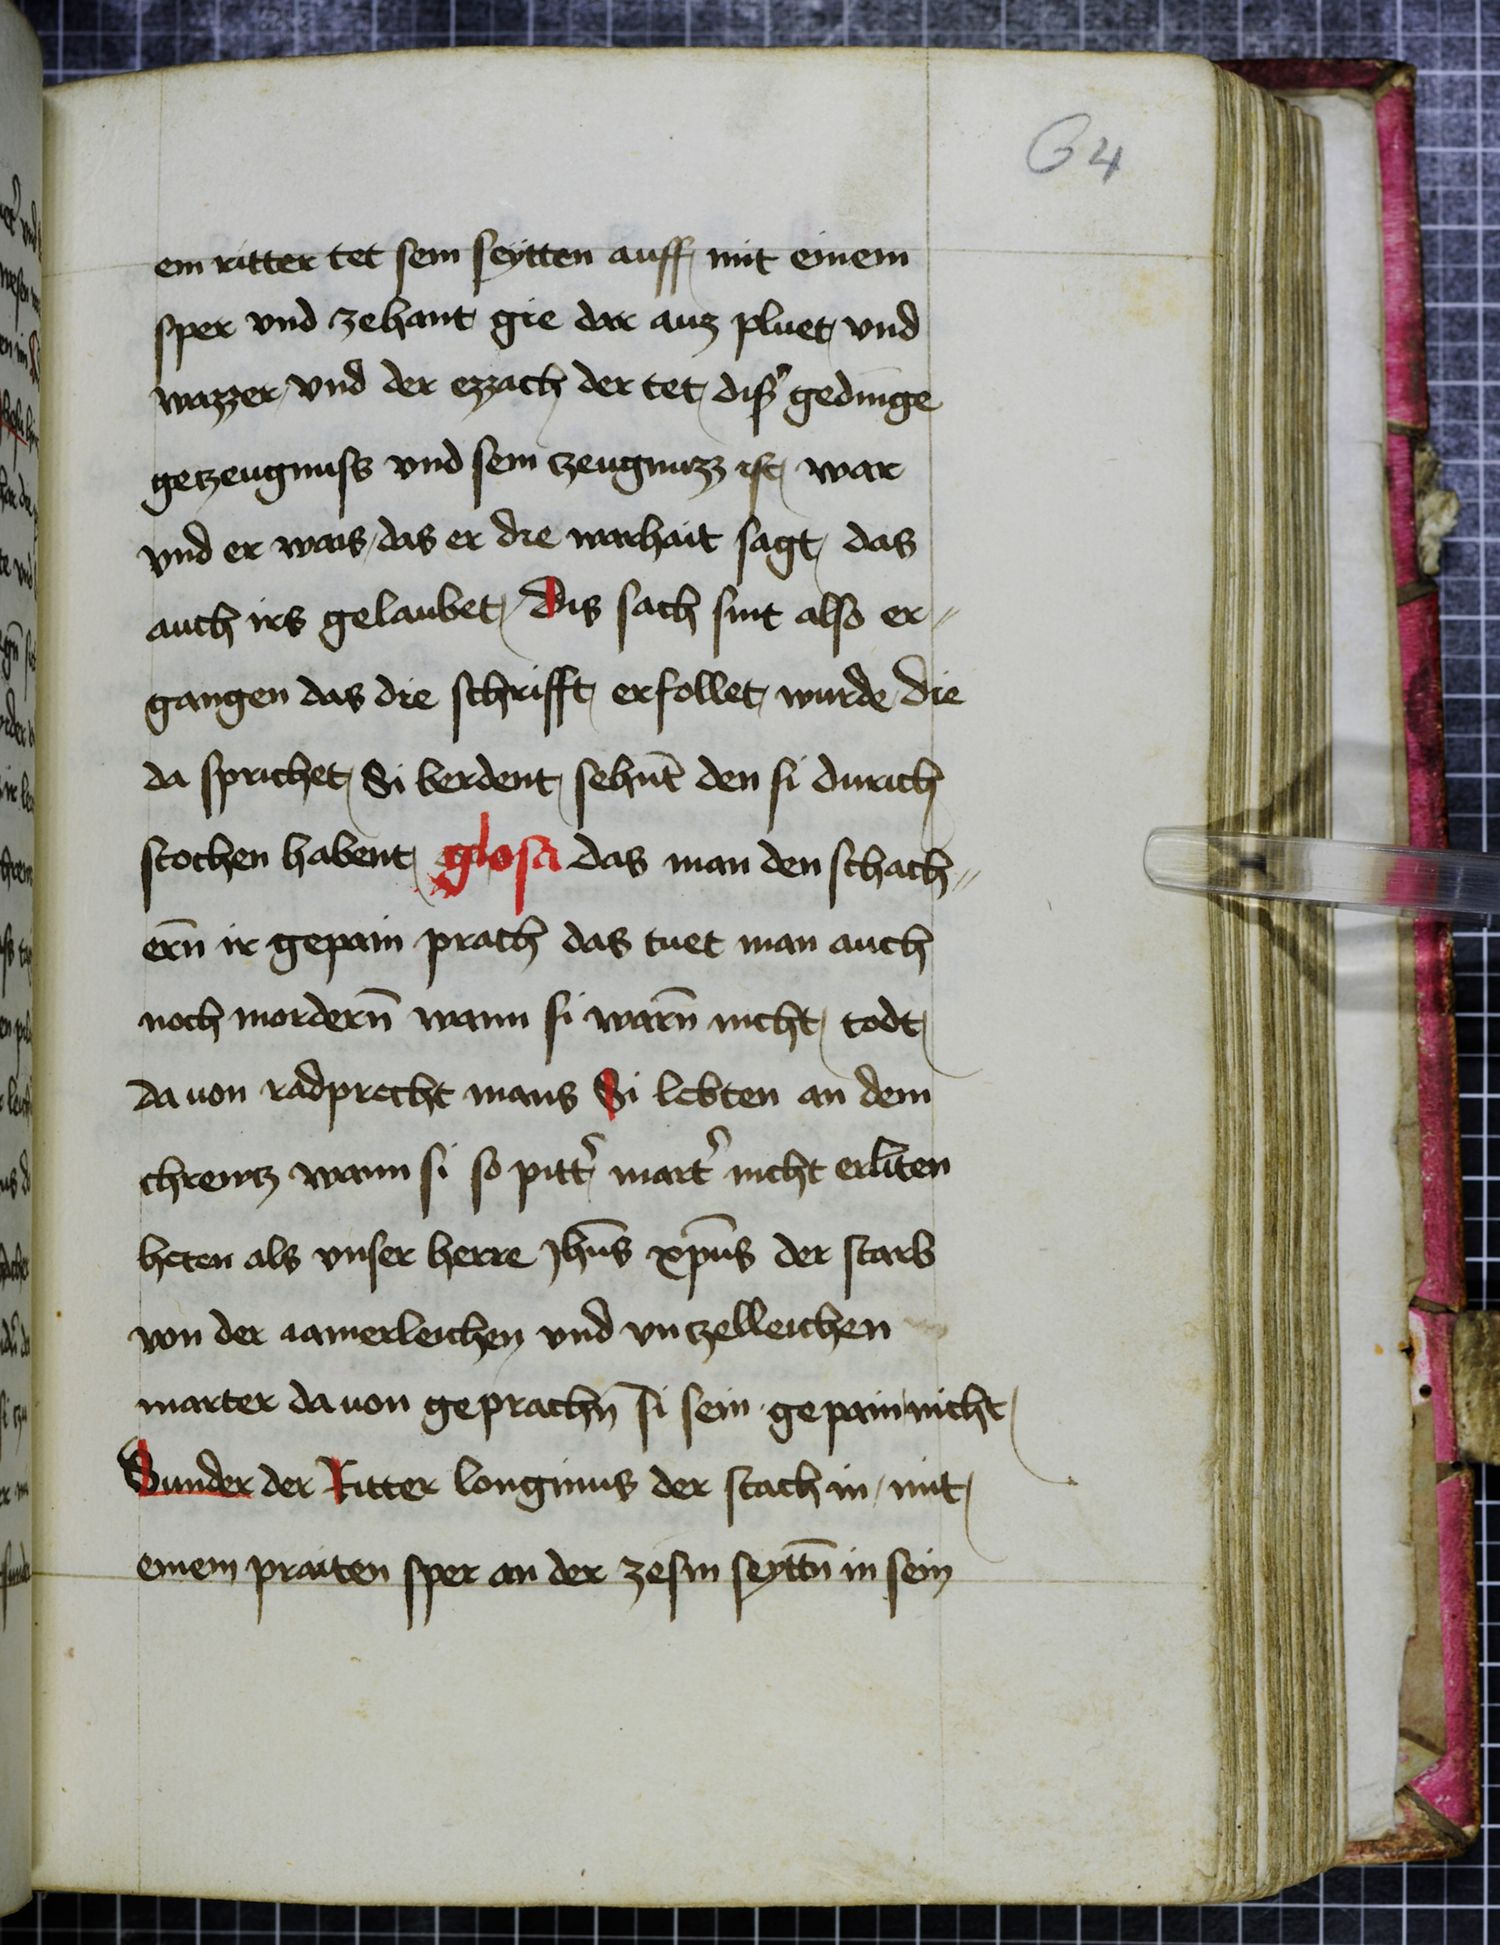 64
ein ritter tet sein seytten auff mit einem
sper vnd zehant gie dar auz pluet vnd
wazzer vnd der ezzach der tet diss᾽ gedinge
getzeugnuss vnd sein tzeugnuzz ist war
vnd er wais das er die warhait sagt das
auch irs gelaubet Dis sach sint also er⸗
gangen das die schrifft erfollet wurde die
da sprichet Si berdent sehn̄t den si durich
stochen habent glosa das man den schach⸗
ern̄ ir gepain prach das tuet man auch
noch mordern̄ wann si warn̄ nicht todt
da uon radprecht mans Si lebten an dem
chreutz wann si so pitt᾽ mart᾽ nicht erliten
heten als vnser herre Jhūs xp̄us der starb
von der iamerleichen vnd vntzelleichen
marter da uon geprachn̄ si sein gepain nicht
Sunder der Ritter longinus der stach in mit
einem praiten sper an der zesm seyttn̄ in sein